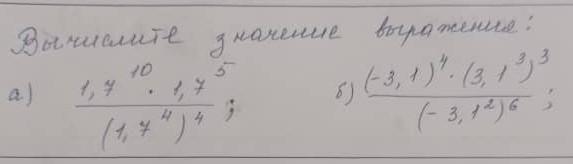 Вычислите значение выражения:
а) (1,7^10 · 1,7^5) / (1,7^4)^4 ; б) ((-3,1)^4 · (3,1^3)^3) / (-3,1^2)^6 ;